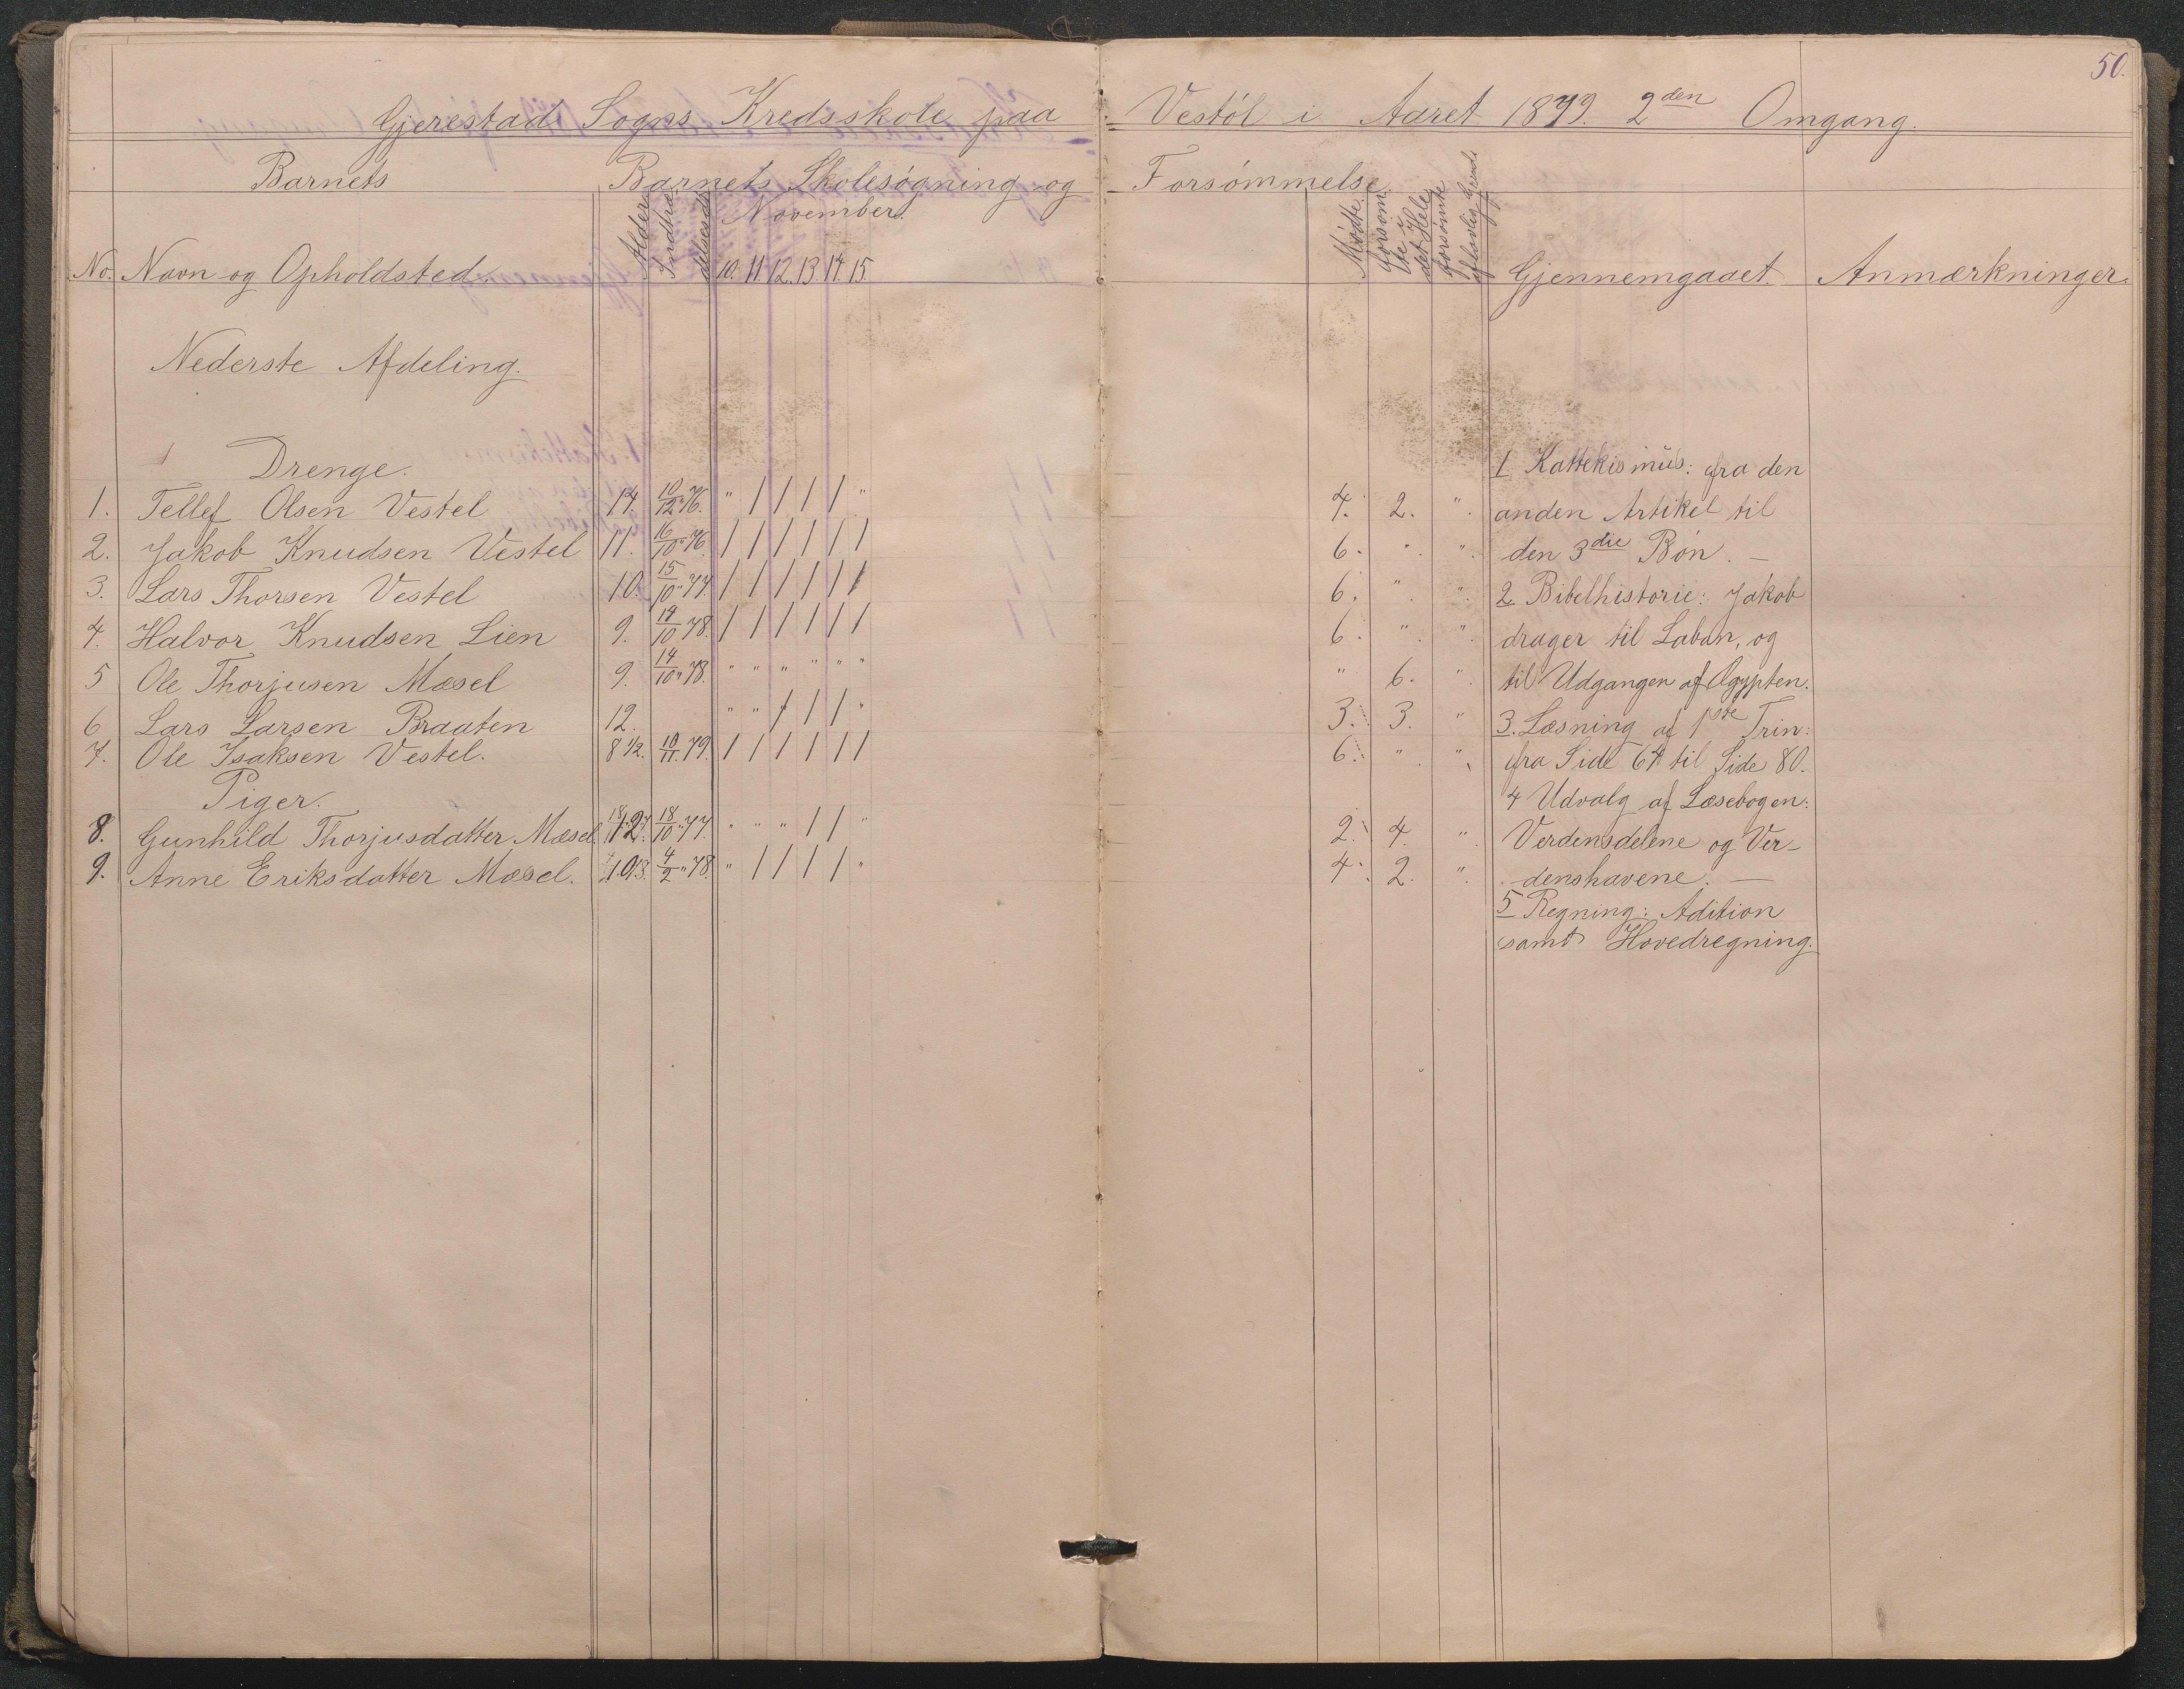 50.
Gjerestad Sogns Kredsskole paa Vestøl i Aaret 1879. 2den Omgang.
Barnets Barnets Skolesøgning og Forsømmelse
No. Navn og Opholdsted. Alder Indtrædelsestid November. 10. 11. 12. 13. 14. 15. Mødte. Forsømte i det Hele forsømte af lovlig Grund Gjennemgaaet. Anmærkninger.
Nederste Afdeling.
Drenge.
1. Tellef Olsen Vestel 14. 10/12 76. " / / / / " 4. 2. "
2. Jakob Knudsen Vestel 11. 16/10 " 76. / / / / / / 6. " "
3. Lars Thorsen Vestel 10. 15/10 " 77. / / / / / / 6. " "
4. Halvor Knudsen Lien 9. 14/10 78. / / / / / / 6. " "
5 Ole Thorjusen Mæsel 9. 14/10 " 78. " " " " " " " 6. "
6 Lars Larsen Braaten 12. " " / / / " 3. 3. "
7. Ole Isaksen Vestel. 8 1/2. 10/11. 79. / / / / / / 6. " "
Piger.
8. Gunhild Thorjusdatter Mæsel. 12. 18/10 " 77. " " " / / " 2. 4. "
9. Anne Eriksdatter Mæsel. 10 4/2 " 78. " / / / / " 4. 2. "
1 Kattekismus: fra den
anden Artikel til
den 3die Bøn. —
2 Bibelhistorie: Jakob
drager til Laban, og
til Udgangen af Ægypten.
3. Læsning af 1ste Trin:
fra Side 64 til Side 80.
4 Udvalg af Læsebogen:
Verdensdelene og Ver-
denshavene. —
5 Regning: Adition
samt Hovedregning.